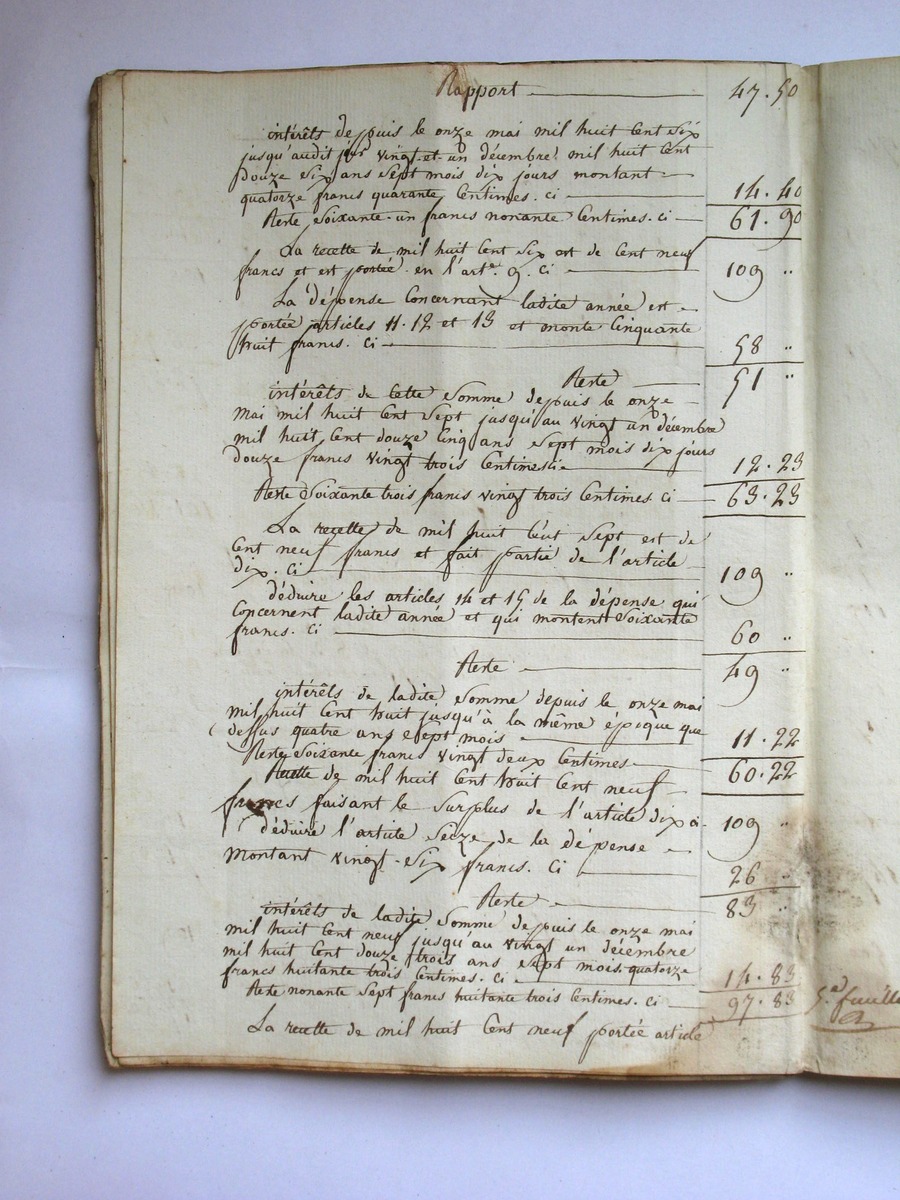 Rapport 47.50
intérêts depuis le onze mai mil huit cent six
jusqu'audit jour vingt-et-un décembre mil huit cent
douze six ans sept mois dix jours montant
quatorze francs quarante centimes. ci 14.40
Reste soixante-un francs nonante centimes. ci 61.90
La recette de mil huit cent six est de cent neuf
francs et est portée en l'art.e 9. ci 109 "
La dépense concernant ladite année est
portée articles 11. 12 et 13 et monte cinquante
huit francs. ci 58 "
Reste 51 "
intérêts de cette somme depuis le onze
mai mil huit cent sept jusqu'au vingt un décembre
mil huit cent douze cinq ans sept mois dix jours
douze francs vingt trois centimes ci 12.23
Reste soixante trois francs vingt trois centimes ci 63.23
La recette de mil huit cent sept est de
cent neuf francs et fait partie de l'article
dix. ci 109 "
déduire les articles 14 et 15 de la dépense qui
concernent ladite année et qui montent soixante
francs. ci 60 "
Reste 49 "
intérêts de ladite somme depuis le onze mai
mil huit cent huit jusqu'à la même epoque que
dessus quatre ans sept mois 11.22
Reste soixante francs vingt deux centimes 60.22
Recette de mil huit cent huit cent neuf
francs faisant le surplus de l'article dix ci 109 "
déduire l'article seize de la dépense
montant vingt-six francs. ci 26 "
Reste 83 "
intérêts de ladite somme depuis le onze mai
mil huit cent neuf jusqu'au vingt un décembre
mil huit cent douze trois ans sept mois quatorze
francs huitante trois centimes. ci 14.83
Reste nonante sept francs huitante trois centimes. ci 97.83
La recette de mil huit cent neuf portée article
5.e feuille